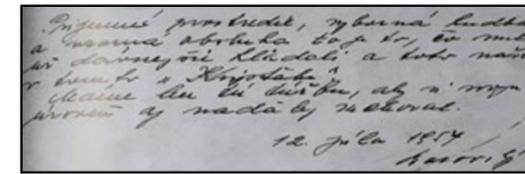 Príjemné prostredie, výborná hudba
a vzorná obsluha to je to, čo sme
už dávnejšie hľadali a toto naš
v tomto "
len tú túžbu, aby si svoju
úroveň aj naďalej zachoval.
12. júla 1957